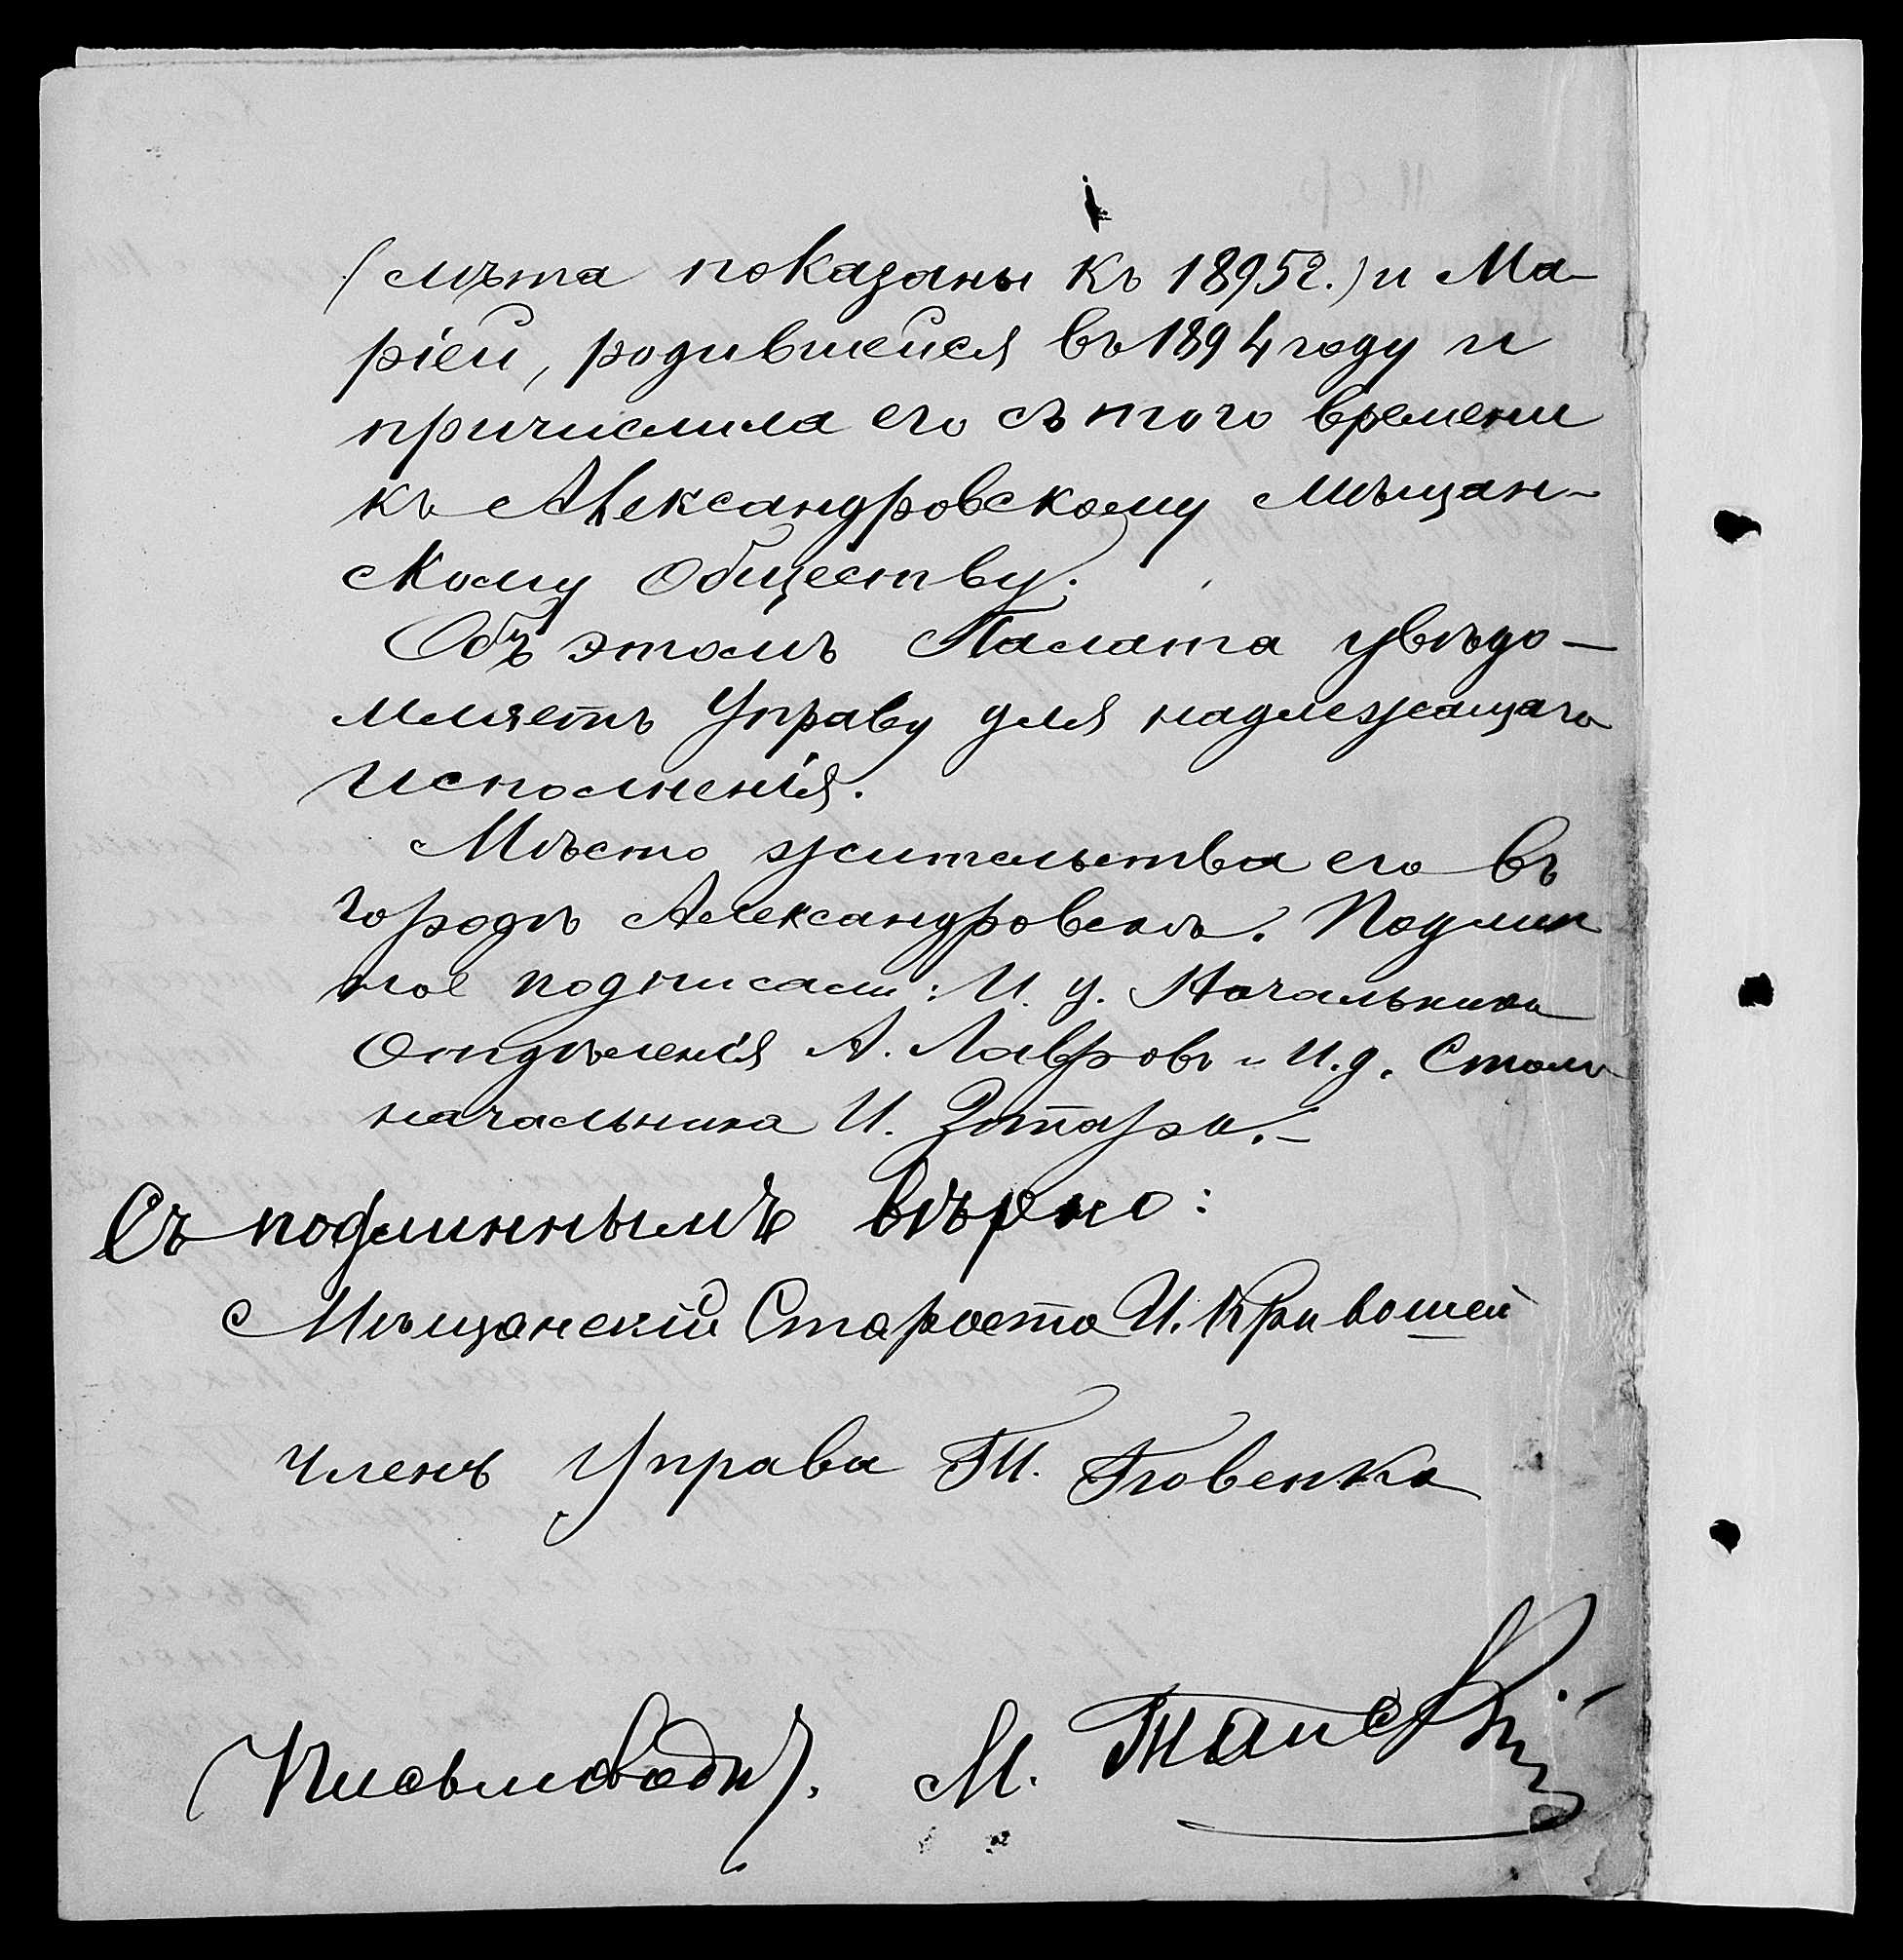 (лѣта показаны къ 1895г.) и Ма-
ріей, родившейся въ 1894 году и
причислила его съ того времени
къ Александровскому Мѣщан-
скому Обществу.
Объ этомъ Палата увѣдо-
мляетъ Управу для надлежащаго
исполненія.
Мѣсто жительства его въ
городѣ Александровскѣ. Подлин
ное подписали: И. д. Начальника
Отдѣленія А. Лавровъ и И.д. Столо
начальника И.
Съ подлиннымъ вѣрно:
Мѣщанскій Староста И. Кривошей
Членъ Управы
Письмовод. М.